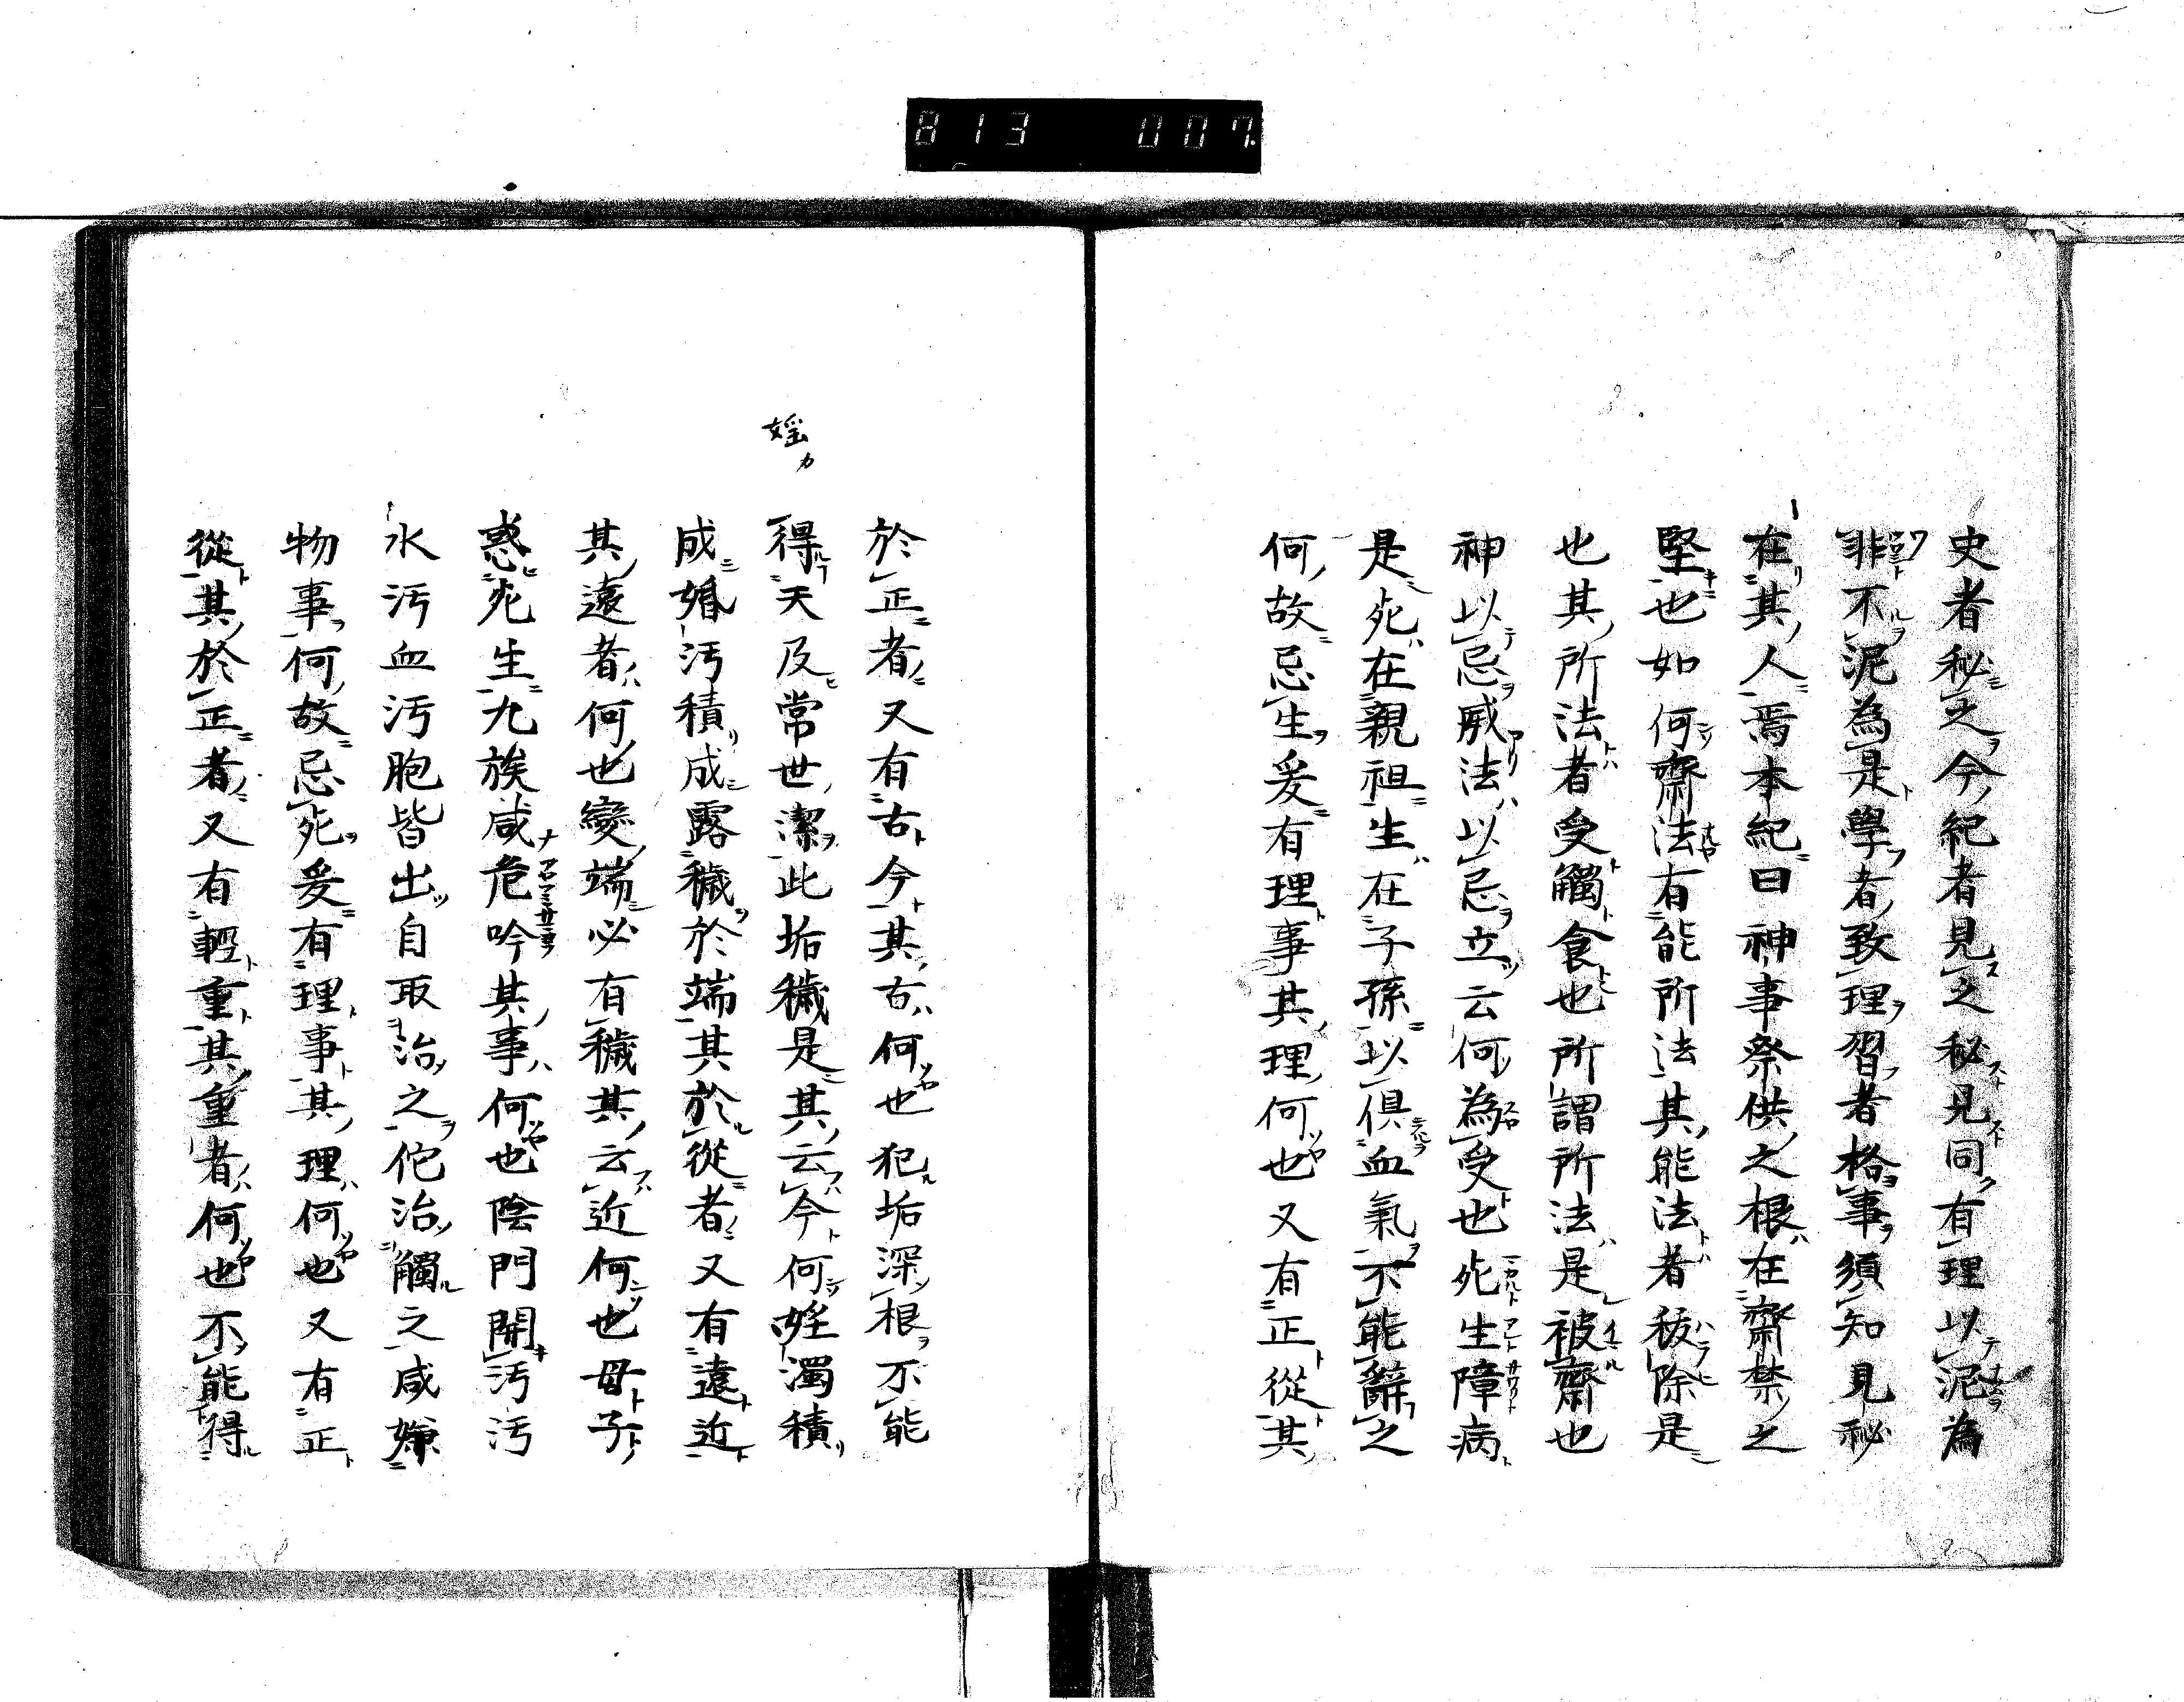 813 007
史者秘之今紀者見之秘見同有理以泥為
非不泥為是學者致理習者格事須知見秘
在其人焉本紀曰神事祭供之根在齋禁之
堅也如何齋法有能所法其能法者祓除是
也其所法者受觸食也所謂所法是被齋也
神以忌威法以忌立云何為受也死生障病
是死在親祖生在子孫以俱血氣不能辭之
何故忌生爰有理事其理何也又有正從其
於正者又有古今其古何也犯垢深根不能
得天及常世潔此垢穢是其云今何婬濁積
婬カ
成婚汚積成露穢於端其於從者又有遠近
其遠者何也變端必有穢其云近何也母子
惑死生九族咸危吟其事何也陰門開汚汚
水汚血汚胞皆出自取治之佗治觸之咸嫌
物事何故忌死爰有理事其理何也又有正
從其於正者又有輕重其重者何也不能得